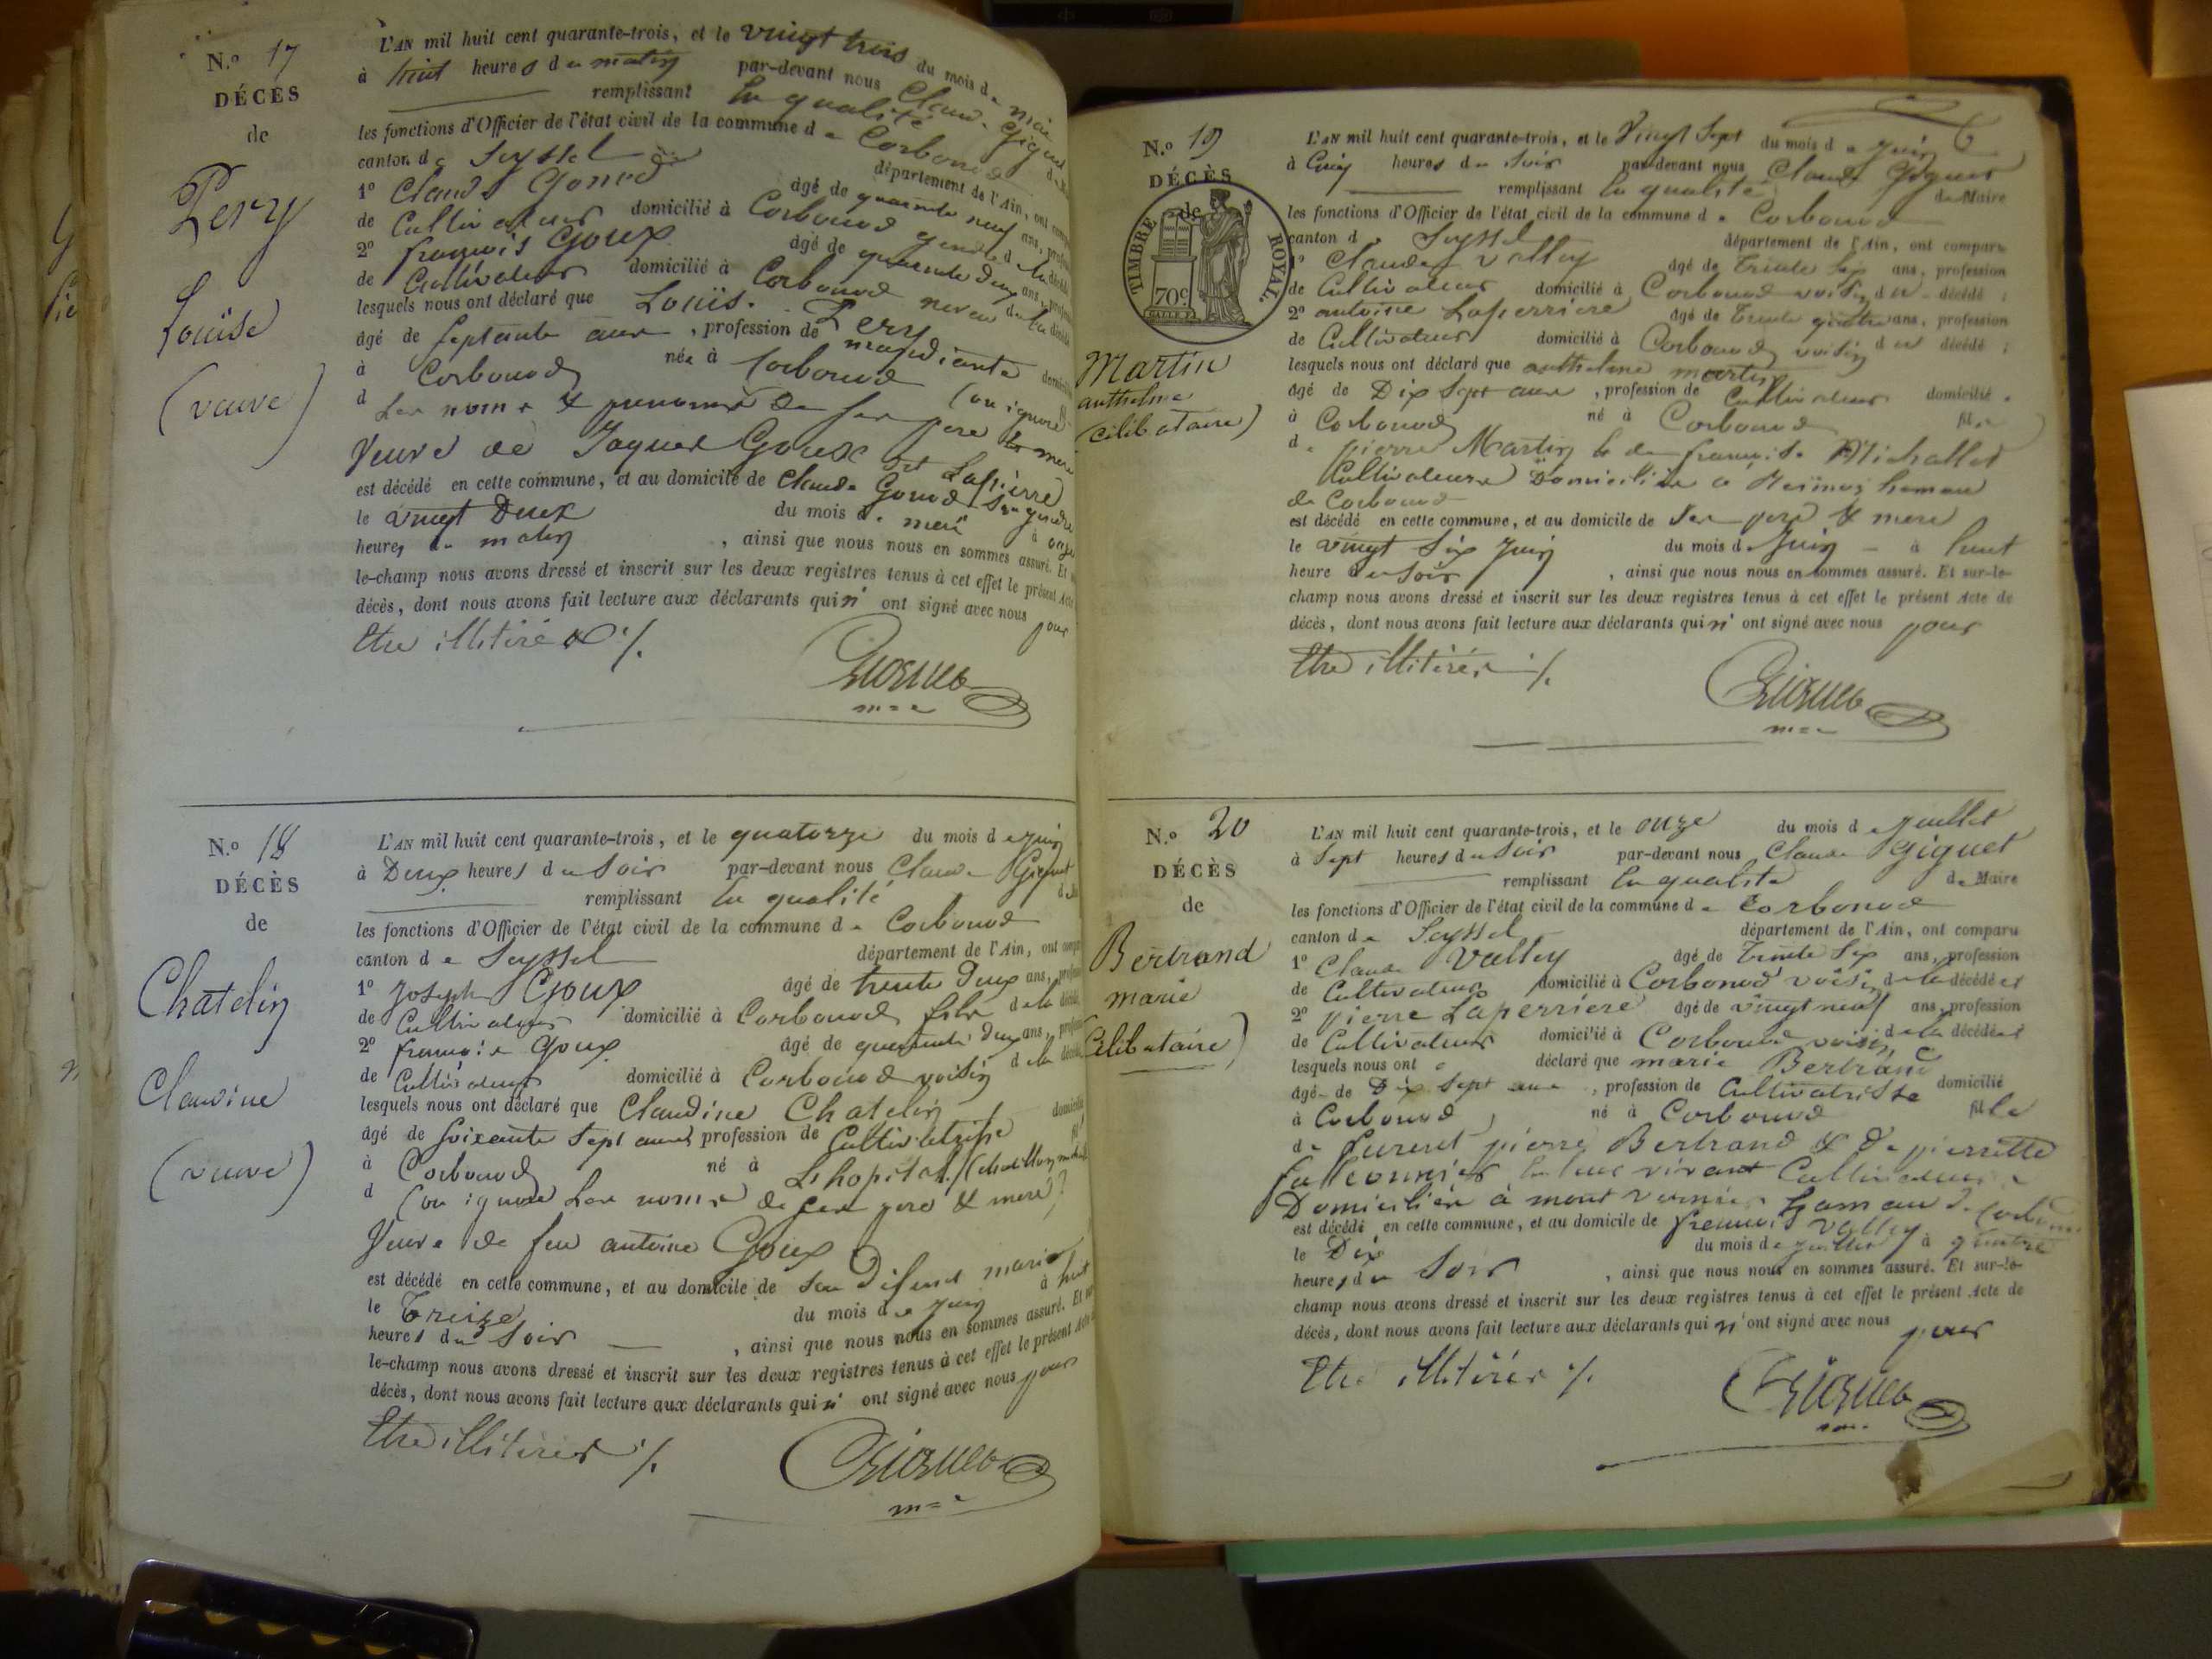 N.º 17
DÉCÈS
de
Pery
Louise
(veuve)
L'AN mil huit cent quarante-trois, et le vingt trois du mois de mai
à huit heures du matin par-devant nous Claude Giguet
remplissant la qualité
les fonctions d'Officier de l'état civil de la commune de Corbonod
canton de Seyssel département de l'Ain, ont
1º Claude Gonod âgé de quarante neuf ans,
de Cultivateur domicilié à Corbonod gendre de la
2º françois Goux âgé de quarante deux ans,
de Cultivateur domicilié à Corbonod neveu de la
lesquels nous ont déclaré que Louise Pery
âgé de septante ans, profession de mandiante
à Corbonod née à Corbonod (on ignore
d Les noms & prenoms de ses pere & mere
Veuve de Jaques Goux dit Lapierre
est décédé en cette commune, et au domicile de Claude Gonod son gendre
le vingt Deux du mois de mai à onze
heures du matin, ainsi que nous nous en sommes assuré. Et
le-champ nous avons dressé et inscrit sur les deux registres tenus à cet effet le présent Acte
décès, dont nous avons fait lecture aux déclarants qui n' ont signé avec nous pour
Etre illitérés ./.
Giguet
N.º 18
DÉCÈS
de
Chatelin
Claudine
(veuve)
L'AN mil huit cent quarante-trois, et le quatorze du mois de juin
à Deux heures du Soir par-devant nous Claude Giguet
remplissant la qualité
les fonctions d'Officier de l'état civil de la commune de Corbonod
canton de Seyssel département de l'Ain, ont
1º Joseph Goux âgé de trente deux ans,
de Cultivateur domicilié à Corbonod fils de la
2º françois Goux âgé de quarante deux ans,
de Cultivateur domicilié à Corbonod voisin de la
lesquels nous ont déclaré que Claudine Chatelin
âgé de soixante sept ans, profession de Cultivatrisse
à Corbonod né à Lhopital
d (on ignore Les noms de ses pere & mere)
Veuve de feu antoine Goux
est décédé en cette commune, et au domicile de son Défunt mario
le Treize du mois de juin à huit
heures du Soir, ainsi que nous nous en sommes assuré. Et
le-champ nous avons dressé et inscrit sur les deux registres tenus à cet effet le présent Acte
décès, dont nous avons fait lecture aux déclarants qui n' ont signé avec nous pour
Etre illitérés ./.
Giguet
N.º 19
DÉCÈS
de
TIMBRE ROYAL.
70c
Martin
anthelme
(célibataire)
L'AN mil huit cent quarante-trois, et le Vingt Sept du mois de juin
à Cinq heures du Soir par-devant nous Claude Giguet
remplissant la qualité de Maire
les fonctions d'Officier de l'état civil de la commune de Corbonod
canton d Seyssel département de l'Ain, ont comparu
1º Claude Valley âgé de Trente Six ans, profession
de Cultivateur domicilié à Corbonod voisin du décédé;
2º antoine Laperriere âgé de Trente quatre ans, profession
de Cultivateur domicilié à Corbonod voisin du décédé;
lesquels nous ont déclaré que anthelme martin
âgé de Dix Sept ans, profession de Cultivateur domicilié
à Corbonod né à Corbonod fils
de pierre Martin & de françoise Michallet
Cultivateurs Domiciliés à hameau
de Corbonod
est décédé en cette commune, et au domicile de Ses pere & mere
le vingt Six juin du mois de Juin à huit
heure du Soir, ainsi que nous nous en sommes assuré. Et sur-le-
champ nous avons dressé et inscrit sur les deux registres tenus à cet effet le présent Acte de
décès, dont nous avons fait lecture aux déclarants qui n' ont signé avec nous pour
Etre illitérés ./.
Giguet
N.º 20
DÉCÈS
de
Bertrand
marie
(Célibataire)
L'AN mil huit cent quarante-trois, et le onze du mois de juillet
à Sept heures du Soir par-devant nous Claude Giguet
remplissant la qualité de Maire
les fonctions d'Officier de l'état civil de la commune de Corbonod
canton de Seyssel département de l'Ain, ont comparu
1º Claude Valley âgé de Trente Six ans, profession
de Cultivateur domicilié à Corbonod voisin de la décédée
2º pierre Laperriere âgé de vingt neuf ans, profession
de Cultivateur domicilié à Corbonod voisin de la décédée
lesquels nous ont déclaré que marie Bertrand
âgé de Dix Sept ans, profession de Cultivatrisse domicilié
à Corbonod né à Corbonod fille
de pierre Bertrand & de pierrette
falconnier Cultivateurs
Domiciliés à hameau de Corbonod
est décédé en cette commune, et au domicile de françois Valley
le Dix du mois de juillet à quatre
heures du Soir, ainsi que nous nous en sommes assuré. Et sur-le-
champ nous avons dressé et inscrit sur les deux registres tenus à cet effet le présent Acte de
décès, dont nous avons fait lecture aux déclarants qui n' ont signé avec nous pour
Etre illitérés ./.
Giguet